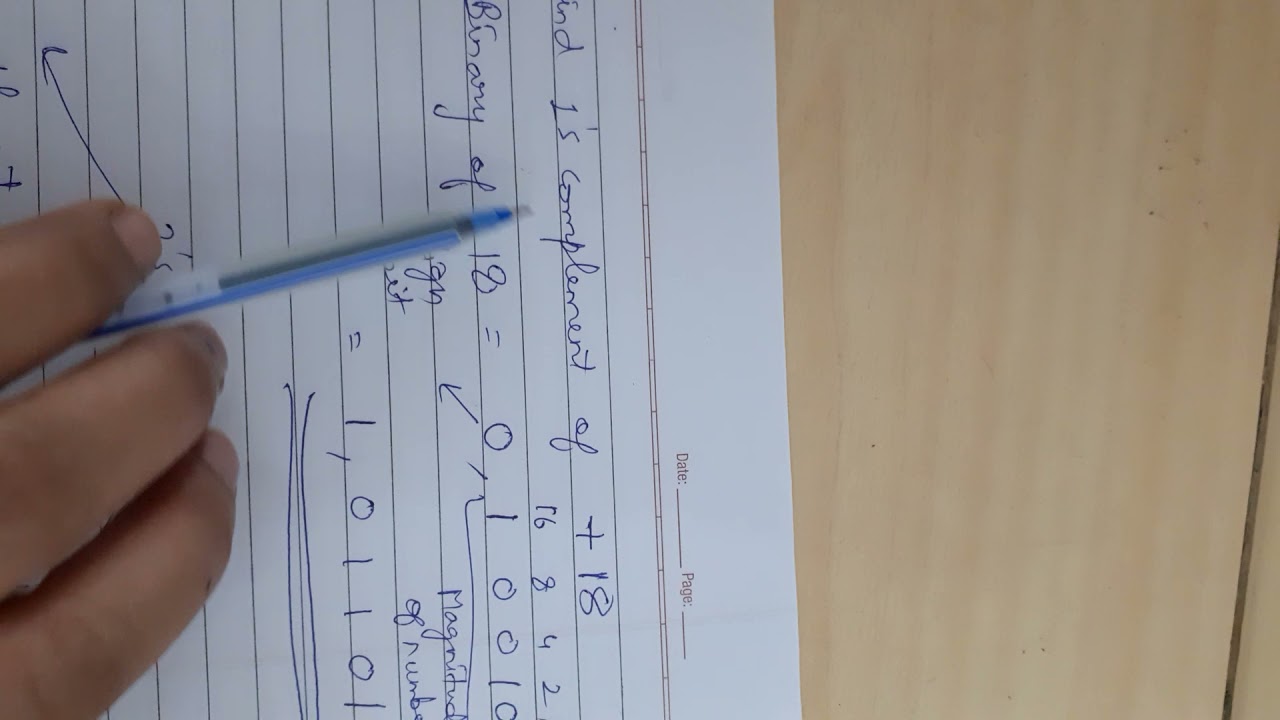 Date: Page:
ind 1's complement of +18
16 8 4 2
Binary of 18 = 0, 1 0 0 1 0
Magnitud
of numbe
= 1, 0 1 1 0 1